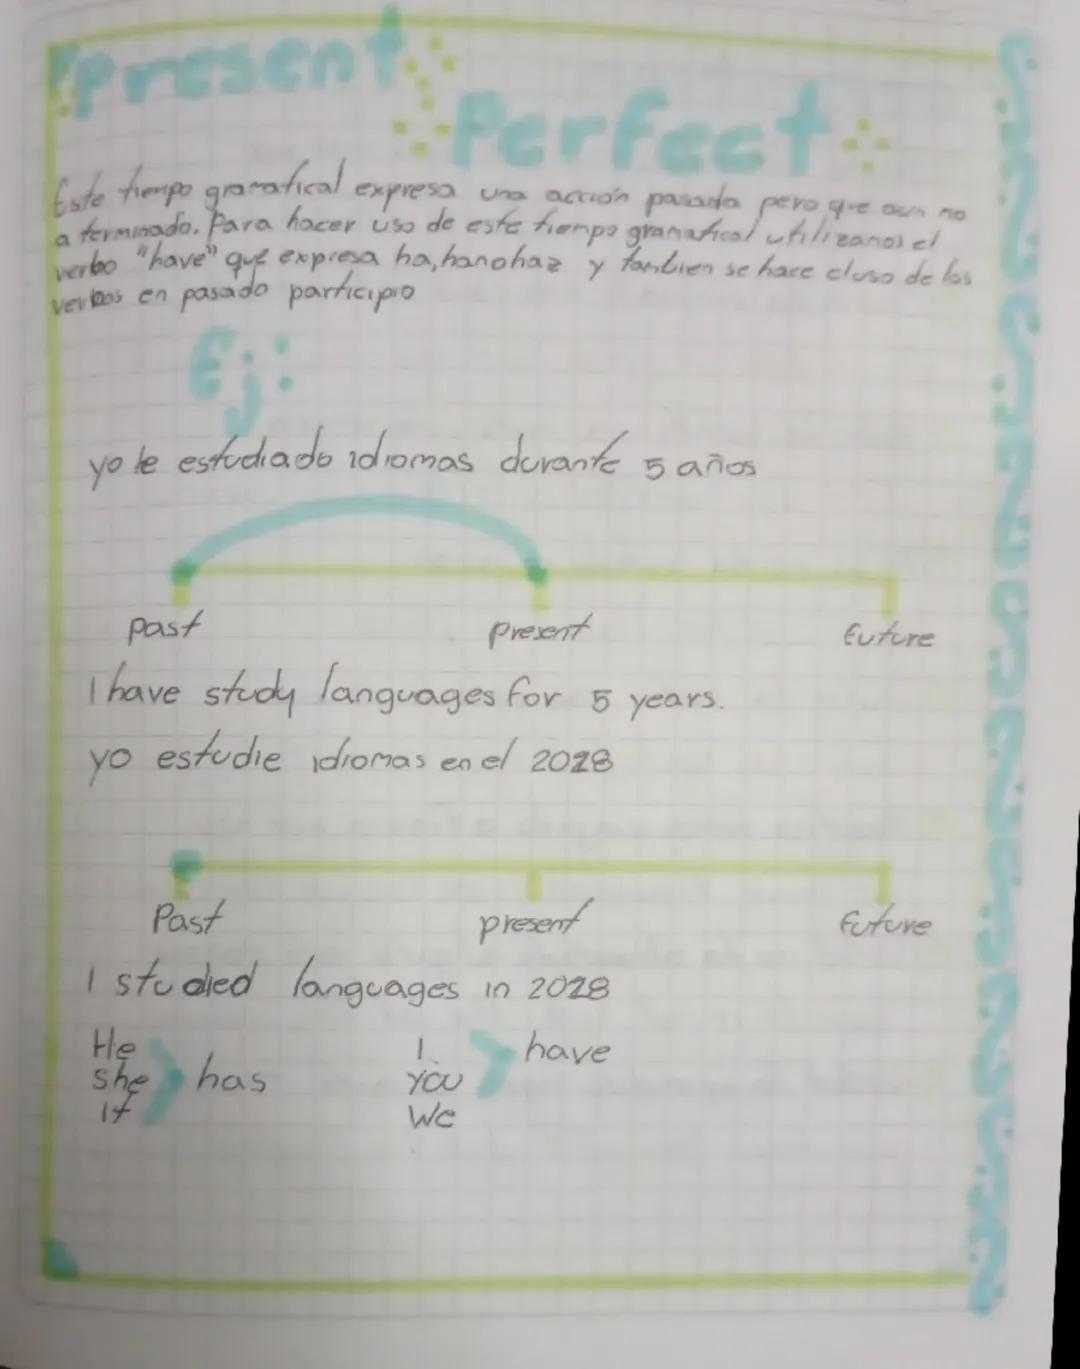 Present
Perfect
Este tiempo gramatical expresa una acción pasada pero que aun no
a terminado. Para hacer uso de este tiempo gramatical utilizamos el
verbo "have" que expresa ha, han o haz y tambien se hace el uso de los
verbos en pasado participio
Ej:
yo he estudiado idiomas durante 5 años
past present future
I have study languages for 5 years.
yo estudie idiomas en el 2018
Past present future
I studied languages in 2018
He I have
she has you
it we